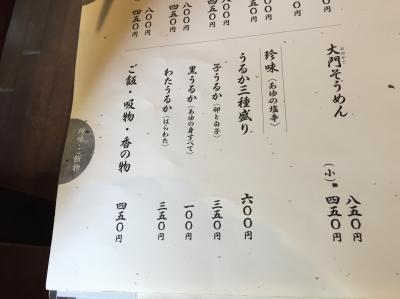 四五〇円
四五〇円
八〇〇円
四五〇円
大門そうめん 八五〇円
おおかど
(小) 四五〇円
珍味(あゆの塩辛)
うるか三種盛り 六〇〇円
子うるか(卵と白子) 三五〇円
黒うるか(あゆの身すべて) 一〇〇円
わたうるか(はらわた) 三五〇円
ご飯・吸物・香の物 四五〇円
珍味・ご飯物